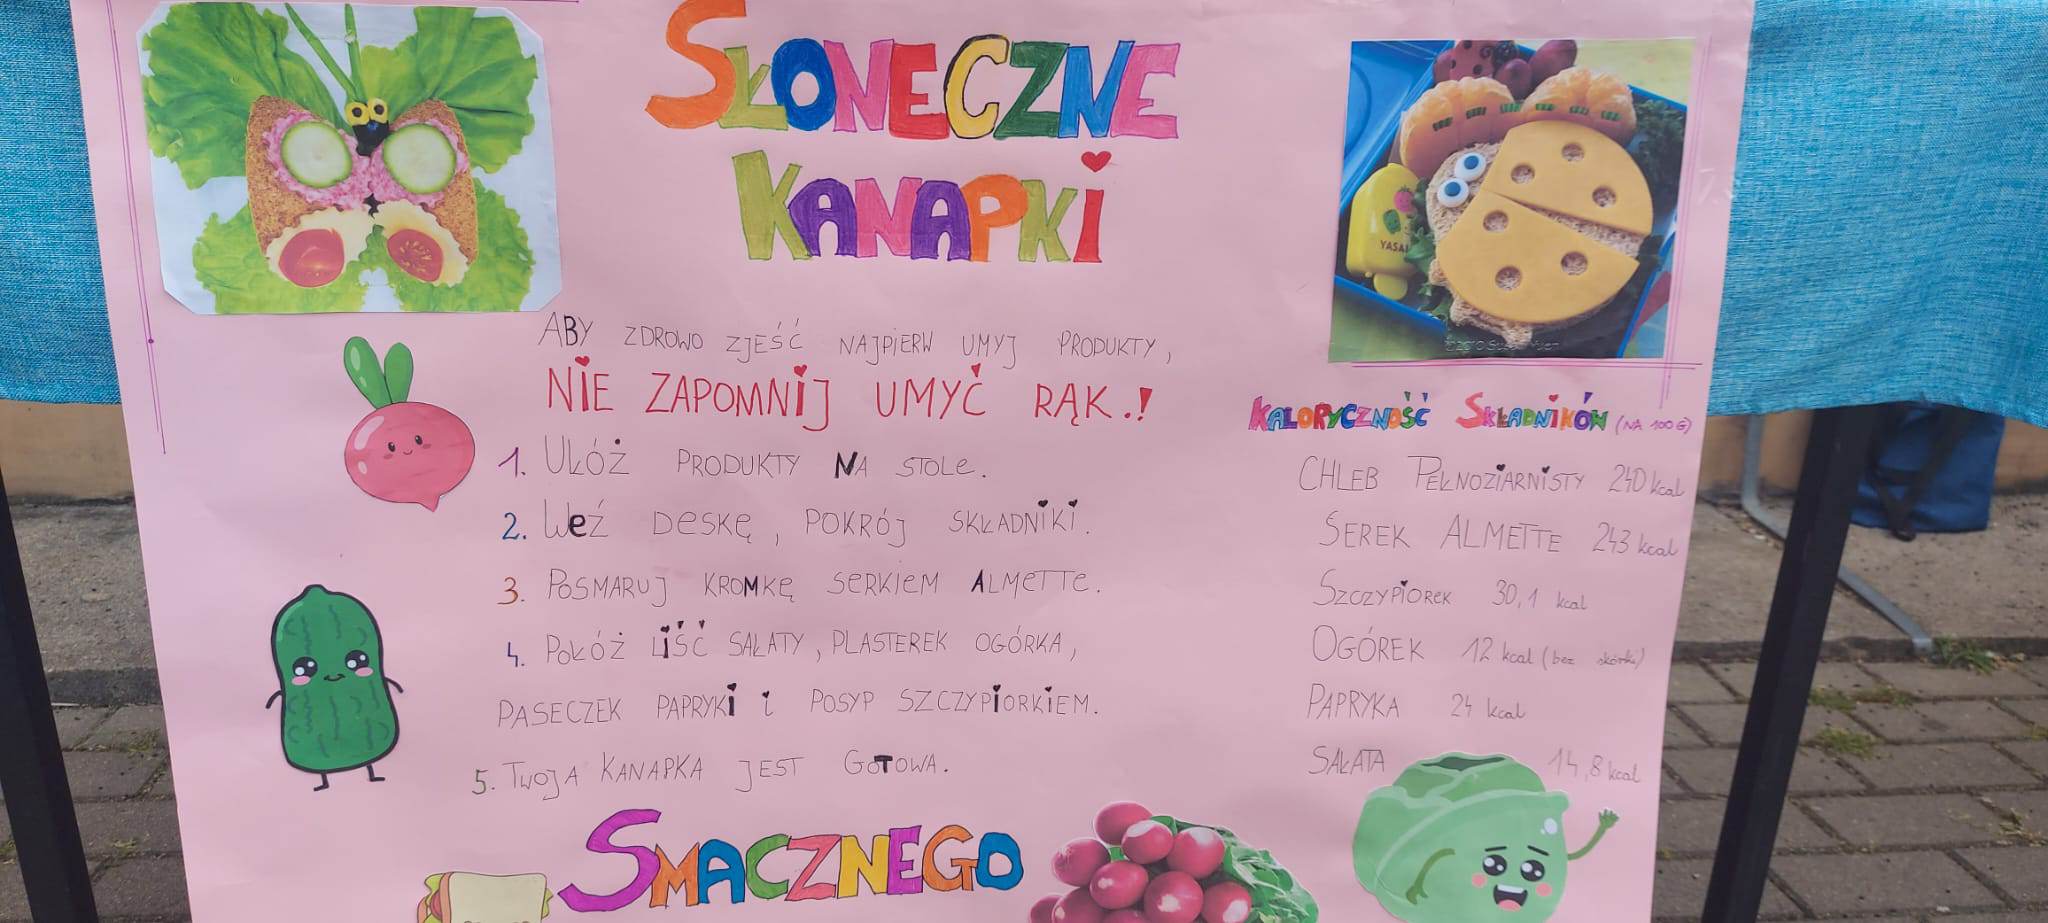 SŁONECZNE
KANAPKI
ABY ZDROWO ZJEŚĆ NAJPIERW UMYJ PRODUKTY,
NIE ZAPOMNIJ UMYĆ RĄK.!
1. UŁÓŻ PRODUKTY NA STOLE.
2. WEŹ DESKĘ, POKRÓJ SKŁADNIKI.
3. POSMARUJ KROMKĘ SERKIEM ALMETTE.
4. POŁÓŻ LIŚĆ SAŁATY, PLASTEREK OGÓRKA,
PASECZEK PAPRYKI I POSYP SZCZYPIORKIEM.
5. TWOJA KANAPKA JEST GOTOWA.
SMACZNEGO
YASAI
KALORYCZNOŚĆ SKŁADNIKÓW (NA 100G)
CHLEB PEŁNOZIARNISTY 240 kcal
SEREK ALMETTE 243 kcal
SZCZYPIOREK 30,1 kcal
OGÓREK 12 kcal (bez skórki)
PAPRYKA 24 kcal
SAŁATA 14,8 kcal